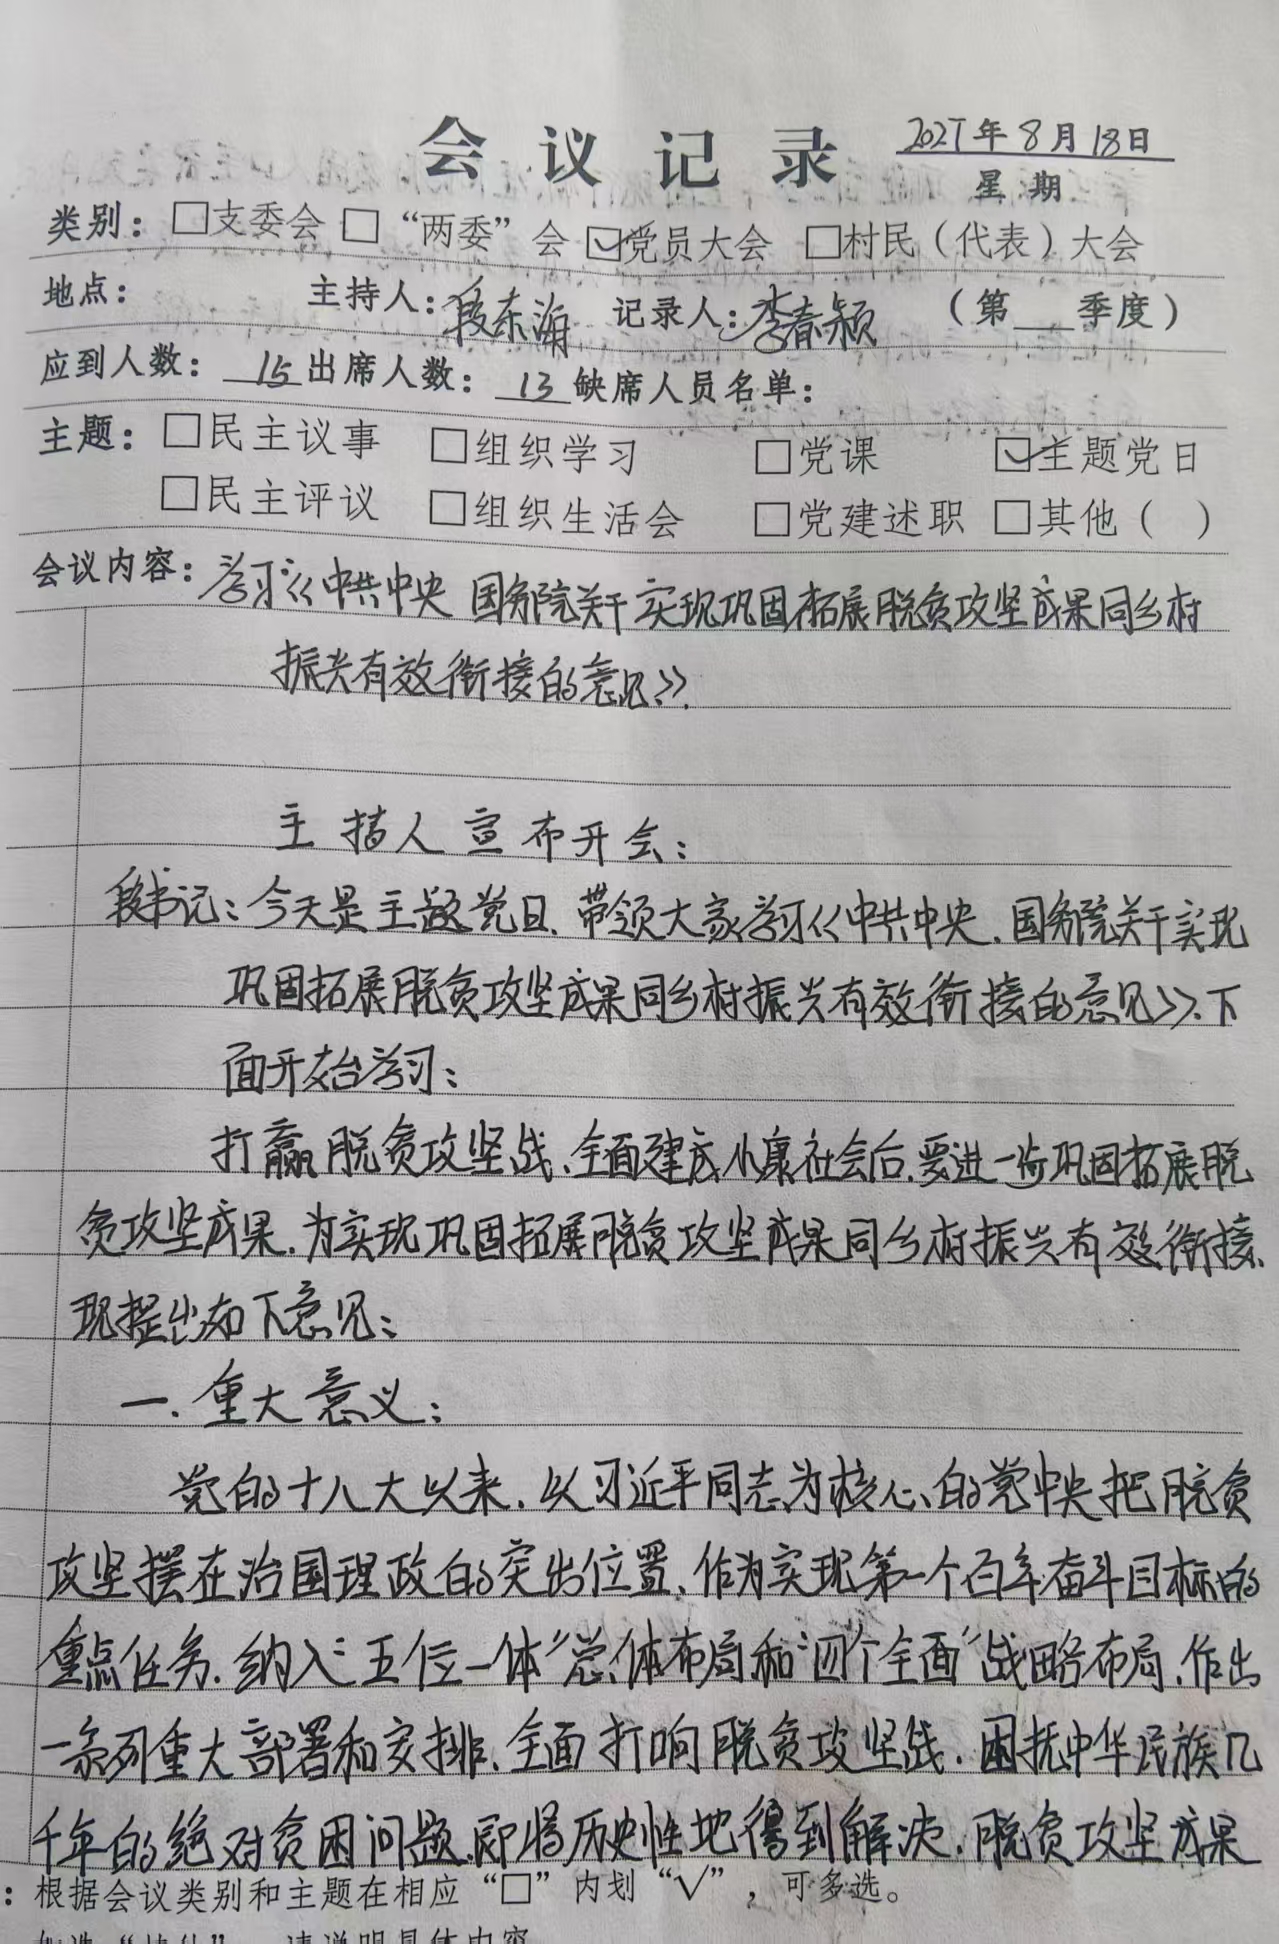 会议记录 202T年8月18日
星期
类别：□支委会 □“两委”会 ☑党员大会 □村民（代表）大会
地点： 主持人：段东海 记录人：李春颖 （第___季度）
应到人数：15 出席人数：13 缺席人员名单：
主题：□民主议事 □组织学习 □党课 ☑主题党日
□民主评议 □组织生活会 □党建述职 □其他（ ）
会议内容：学习《中共中央 国务院关于实现巩固拓展脱贫攻坚成果同乡村
振兴有效衔接的意见》.
主持人宣布开会：
段书记：今天是主题党日、带领大家学习《中共中央、国务院关于实现
巩固拓展脱贫攻坚成果同乡村振兴有效衔接的意见》、下
面开始学习：
打赢脱贫攻坚战、全面建成小康社会后、要进一步巩固拓展脱
贫攻坚成果、为实现巩固拓展脱贫攻坚成果同乡村振兴有效衔接、
现提出如下意见：
一、重大意义：
党的十八大以来、以习近平同志为核心的党中央把脱贫
攻坚摆在治国理政的突出位置、作为实现第一个百年奋斗目标的
重点任务、纳入“五位一体”总体布局和“四个全面”战略布局、作出
一系列重大部署和安排、全面打响脱贫攻坚战、困扰中华民族几
千年的绝对贫困问题即将历史性地得到解决、脱贫攻坚成果
：根据会议类别和主题在相应“□”内划“√”，可多选。